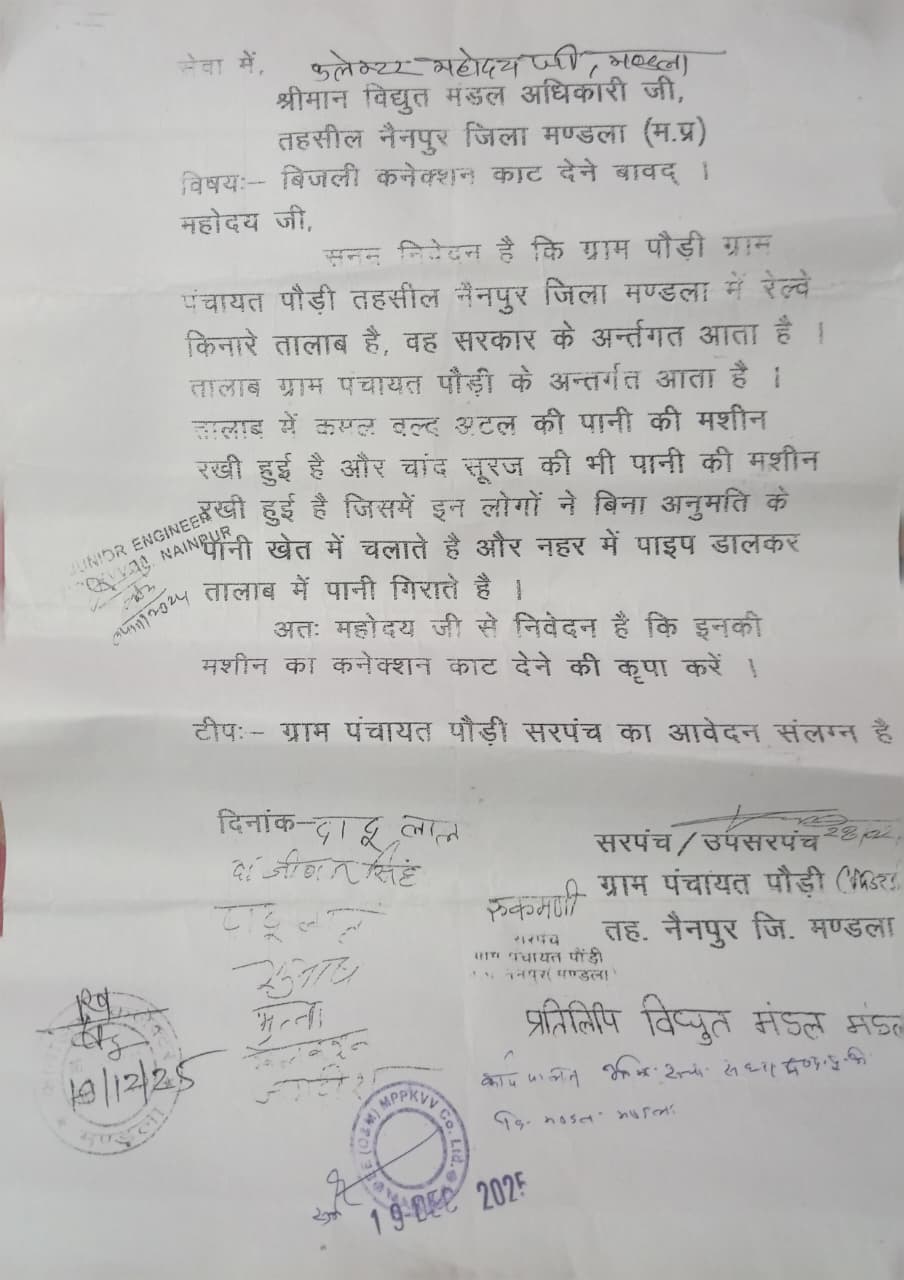 सेवा में, कलेक्टर महोदय जी, मण्डला
श्रीमान विद्युत मंडल अधिकारी जी,
तहसील नैनपुर जिला मण्डला (म.प्र)
विषयः– बिजली कनेक्शन काट देने बावद् ।
महोदय जी,
सनम्र निवेदन है कि ग्राम पौड़ी ग्राम
पंचायत पौड़ी तहसील नैनपुर जिला मण्डला में रेल्वे
किनारे तालाब है, वह सरकार के अर्न्तगत आता है ।
तालाब ग्राम पंचायत पौड़ी के अन्तर्गत आता है ।
तालाब में कमल वल्द अटल की पानी की मशीन
रखी हुई है और चांद सूरज की भी पानी की मशीन
रखी हुई है जिसमें इन लोगों ने बिना अनुमति के
पानी खेत में चलाते है और नहर में पाइप डालकर
तालाब में पानी गिराते है ।
JUNIOR ENGINEER
NAINPUR
अतः महोदय जी से निवेदन है कि इनकी
मशीन का कनेक्शन काट देने की कृपा करें ।
टीपः– ग्राम पंचायत पौड़ी सरपंच का आवेदन संलग्न है
दिनांक– दादू लाल
जीवन सिंह
सरपंच / उपसरपंच
ग्राम पंचायत पौड़ी
तह. नैनपुर जि. मण्डला
रुकमणी
सरपंच
ग्राम पंचायत पौंडी
नैनपुर (मण्डला)
प्रतिलिपि विद्युत मंडल
19/12/25
मण्डला
(O&M) MPPKVV Co. Ltd.
19 DEC 2025